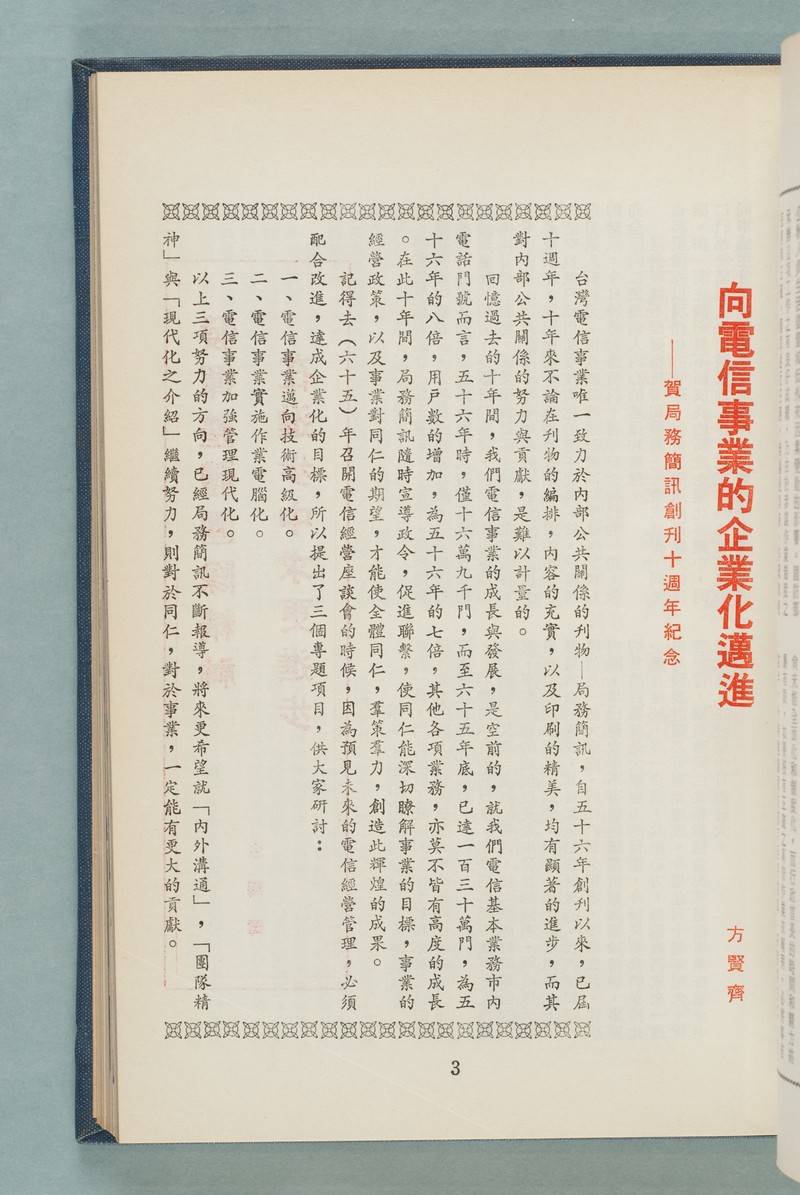 向電信事業的企業化邁進
——賀局務簡訊創刊十週年紀念
方賢齊
台灣電信事業唯一致力於內部公共關係的刊物—局務簡訊，自五十六年創刊以來，已屆
十週年，十年來不論在刊物的編排，內容的充實，以及印刷的精美，均有顯著的進步，而其
對內部公共關係的努力與貢獻，是難以計量的。
回憶過去的十年間，我們電信事業的成長與發展，是空前的，就我們電信基本業務市內
電話門號而言，五十六年時，僅十六萬九千門，而至六十五年底，已達一百三十萬門，為五
十六年的八倍，用戶數的增加，為五十六年的七倍，其他各項業務，亦莫不皆有高度的成長
。在此十年間，局務簡訊隨時宣導政令，促進聯繫，使同仁能深切瞭解事業的目標，事業的
經營政策，以及事業對同仁的期望，才能使全體同仁，羣策羣力，創造此輝煌的成果。
記得去（六十五）年召開電信經營座談會的時候，因為預見未來的電信經營管理，必須
配合改進，達成企業化的目標，所以提出了三個專題項目，供大家研討：
一、電信事業邁向技術高級化。
二、電信事業實施作業電腦化。
三、電信事業加強管理現代化。
以上三項努力的方向，已經局務簡訊不斷報導，將來更希望就「內外溝通」，「團隊精
神」與「現代化之介紹」繼續努力，則對於同仁，對於事業，一定能有更大的貢獻。
3